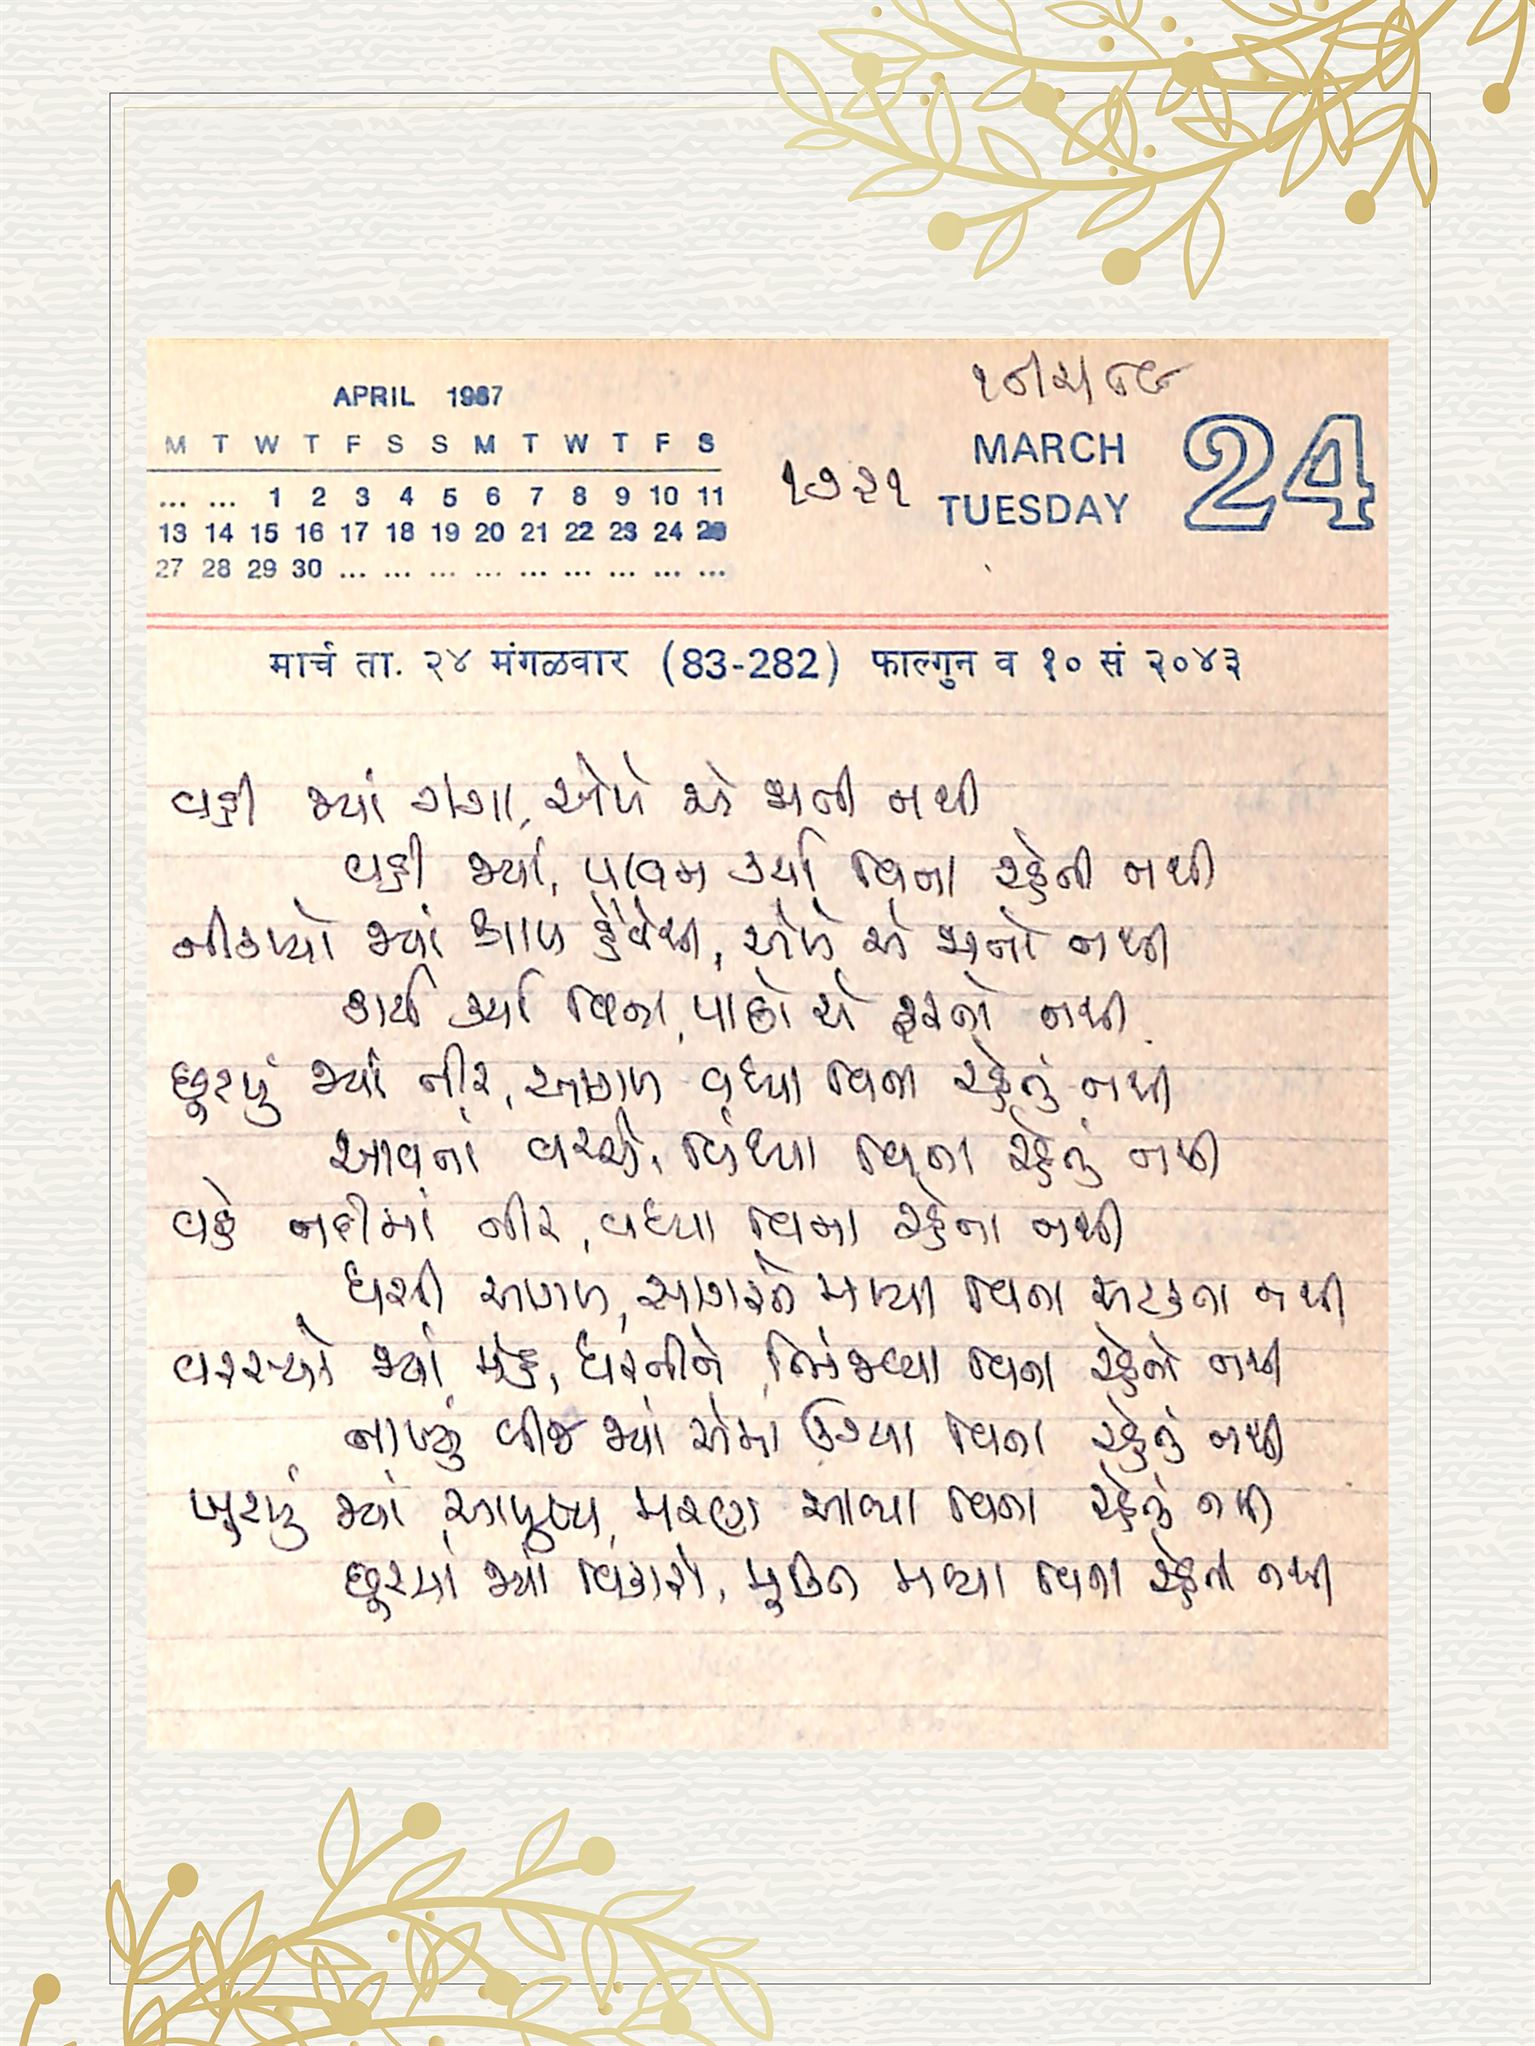 ૧૭/૨/૮૯
APRIL 1987
M T W T F S S M T W T F S
... ... 1 2 3 4 5 6 7 8 9 10 11
13 14 15 16 17 18 19 20 21 22 23 24 25
27 28 29 30 ... ... ... ... ... ... ... ... ...
૧૭૨૧
MARCH
TUESDAY
24
मार्च ता. २४ मंगळवार (83-282) फाल्गुन व १० सं २०४३
વહી જ્યાં ગંગા, એળે એ જાતી નથી
વહી જ્યાં, પાવન કર્યા વિના રહેતી નથી
નીકળ્યો જ્યાં કાળ ક્રોધે, એળે એ જાતો નથી
કાર્ય કર્યા વિના, પાછો એ ફરતો નથી
છૂટયું જ્યાં તીર, આગળ વધ્યા વિના રહેતું નથી
આવતાં વચ્ચે, વિંધ્યા વિના રહેતું નથી
વહે નદીમાં નીર, વધ્યા વિના રહેતા નથી
ધસી આગળ, સાગરને મળ્યા વિના અટકતા નથી
વરસ્યો જ્યાં મેહ, ધરતીને ભિંજવ્યા વિના રહેતો નથી
નાખ્યું બીજ જ્યાં એમાં ઉગ્યા વિના રહેતું નથી
ખૂટયું જ્યાં આયુષ્ય, મરણ આવ્યા વિના રહેતું નથી
છૂટયાં જ્યાં વિકારો, મૂક્તિ મળ્યા વિના રહેતી નથી